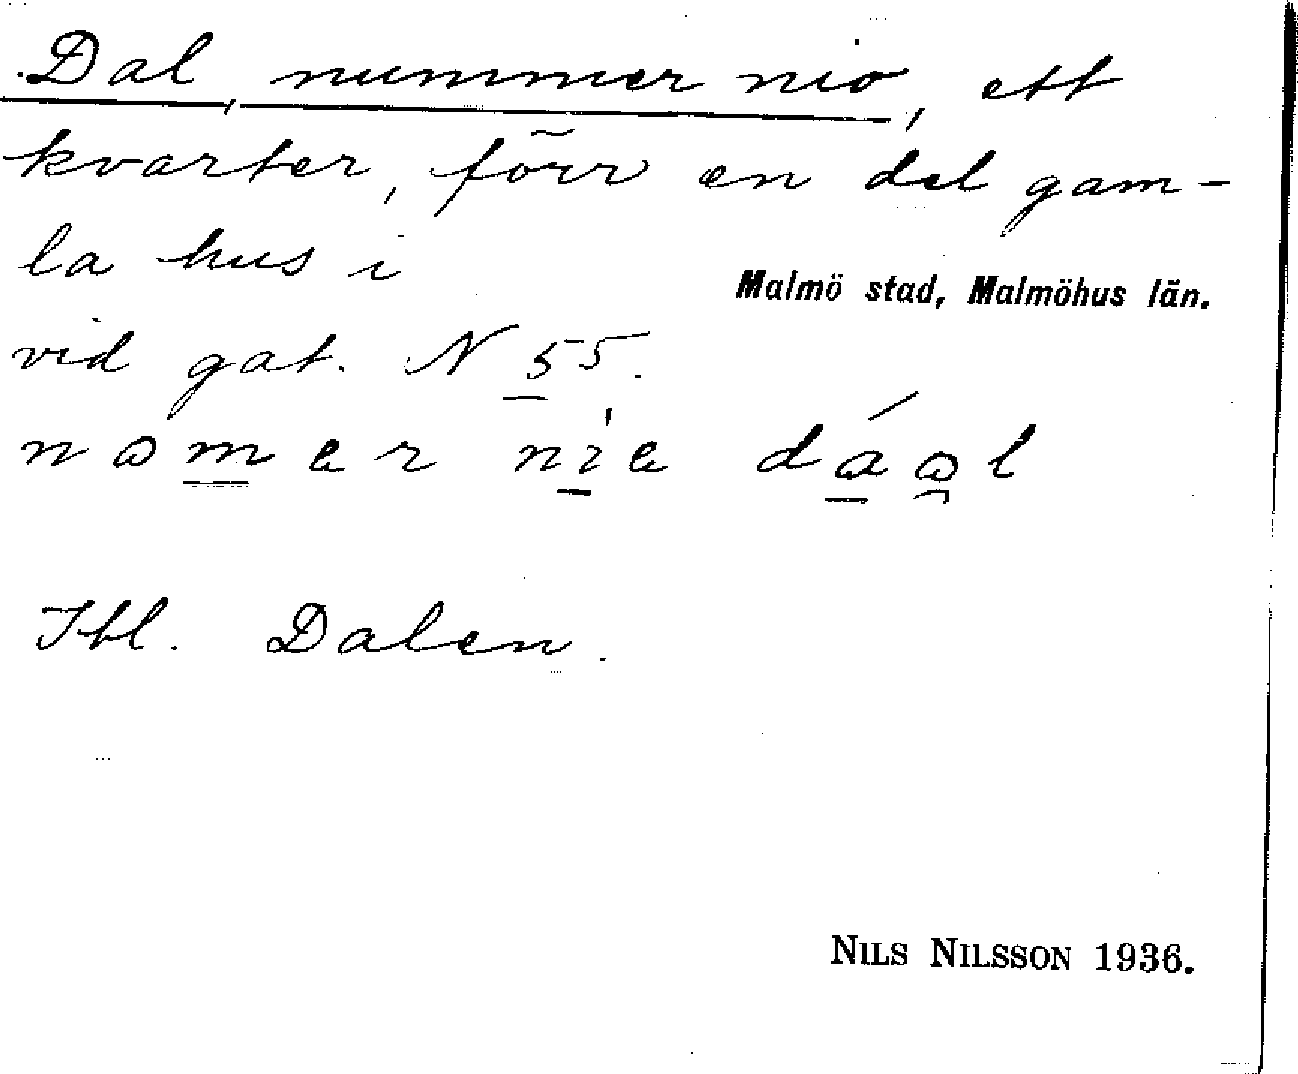 Dal, nummer nio, ett
kvarter, förr en del gam-
la hus i
Malmö stad, Malmöhus län.
vid gat. N 55.
nomer nie dáol
Jfl. Dalen.
NILS NILSSON 1936.